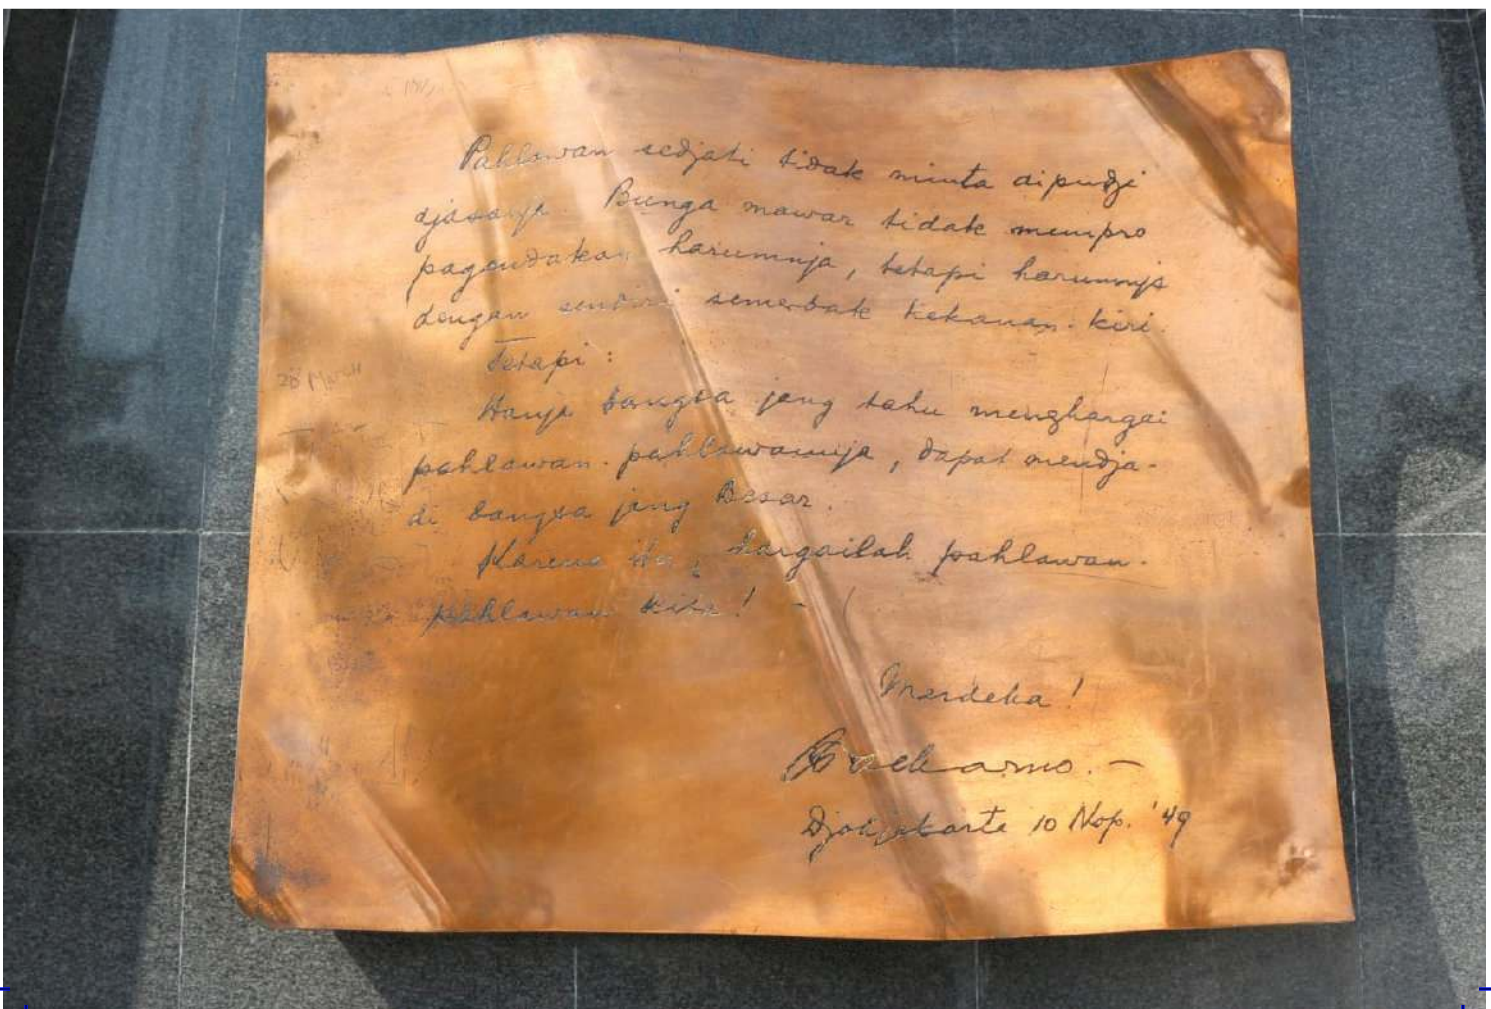 Pahlawan sedjati tidak minta dipudji
djasanja. Bunga mawar tidak mempro
pagandakan harumnja, tetapi harumnja
dengan sendiri semerbak kekanan-kiri.
Tetapi:
Hanja bangsa jang tahu menghargai
pahlawan-pahlawannja, dapat mendja-
di bangsa jang Besar.
Karena itu, hargailah pahlawan-
pahlawan kita! -
Merdeka!
Soekarno.-
Djokjakarta 10 Nop. '49